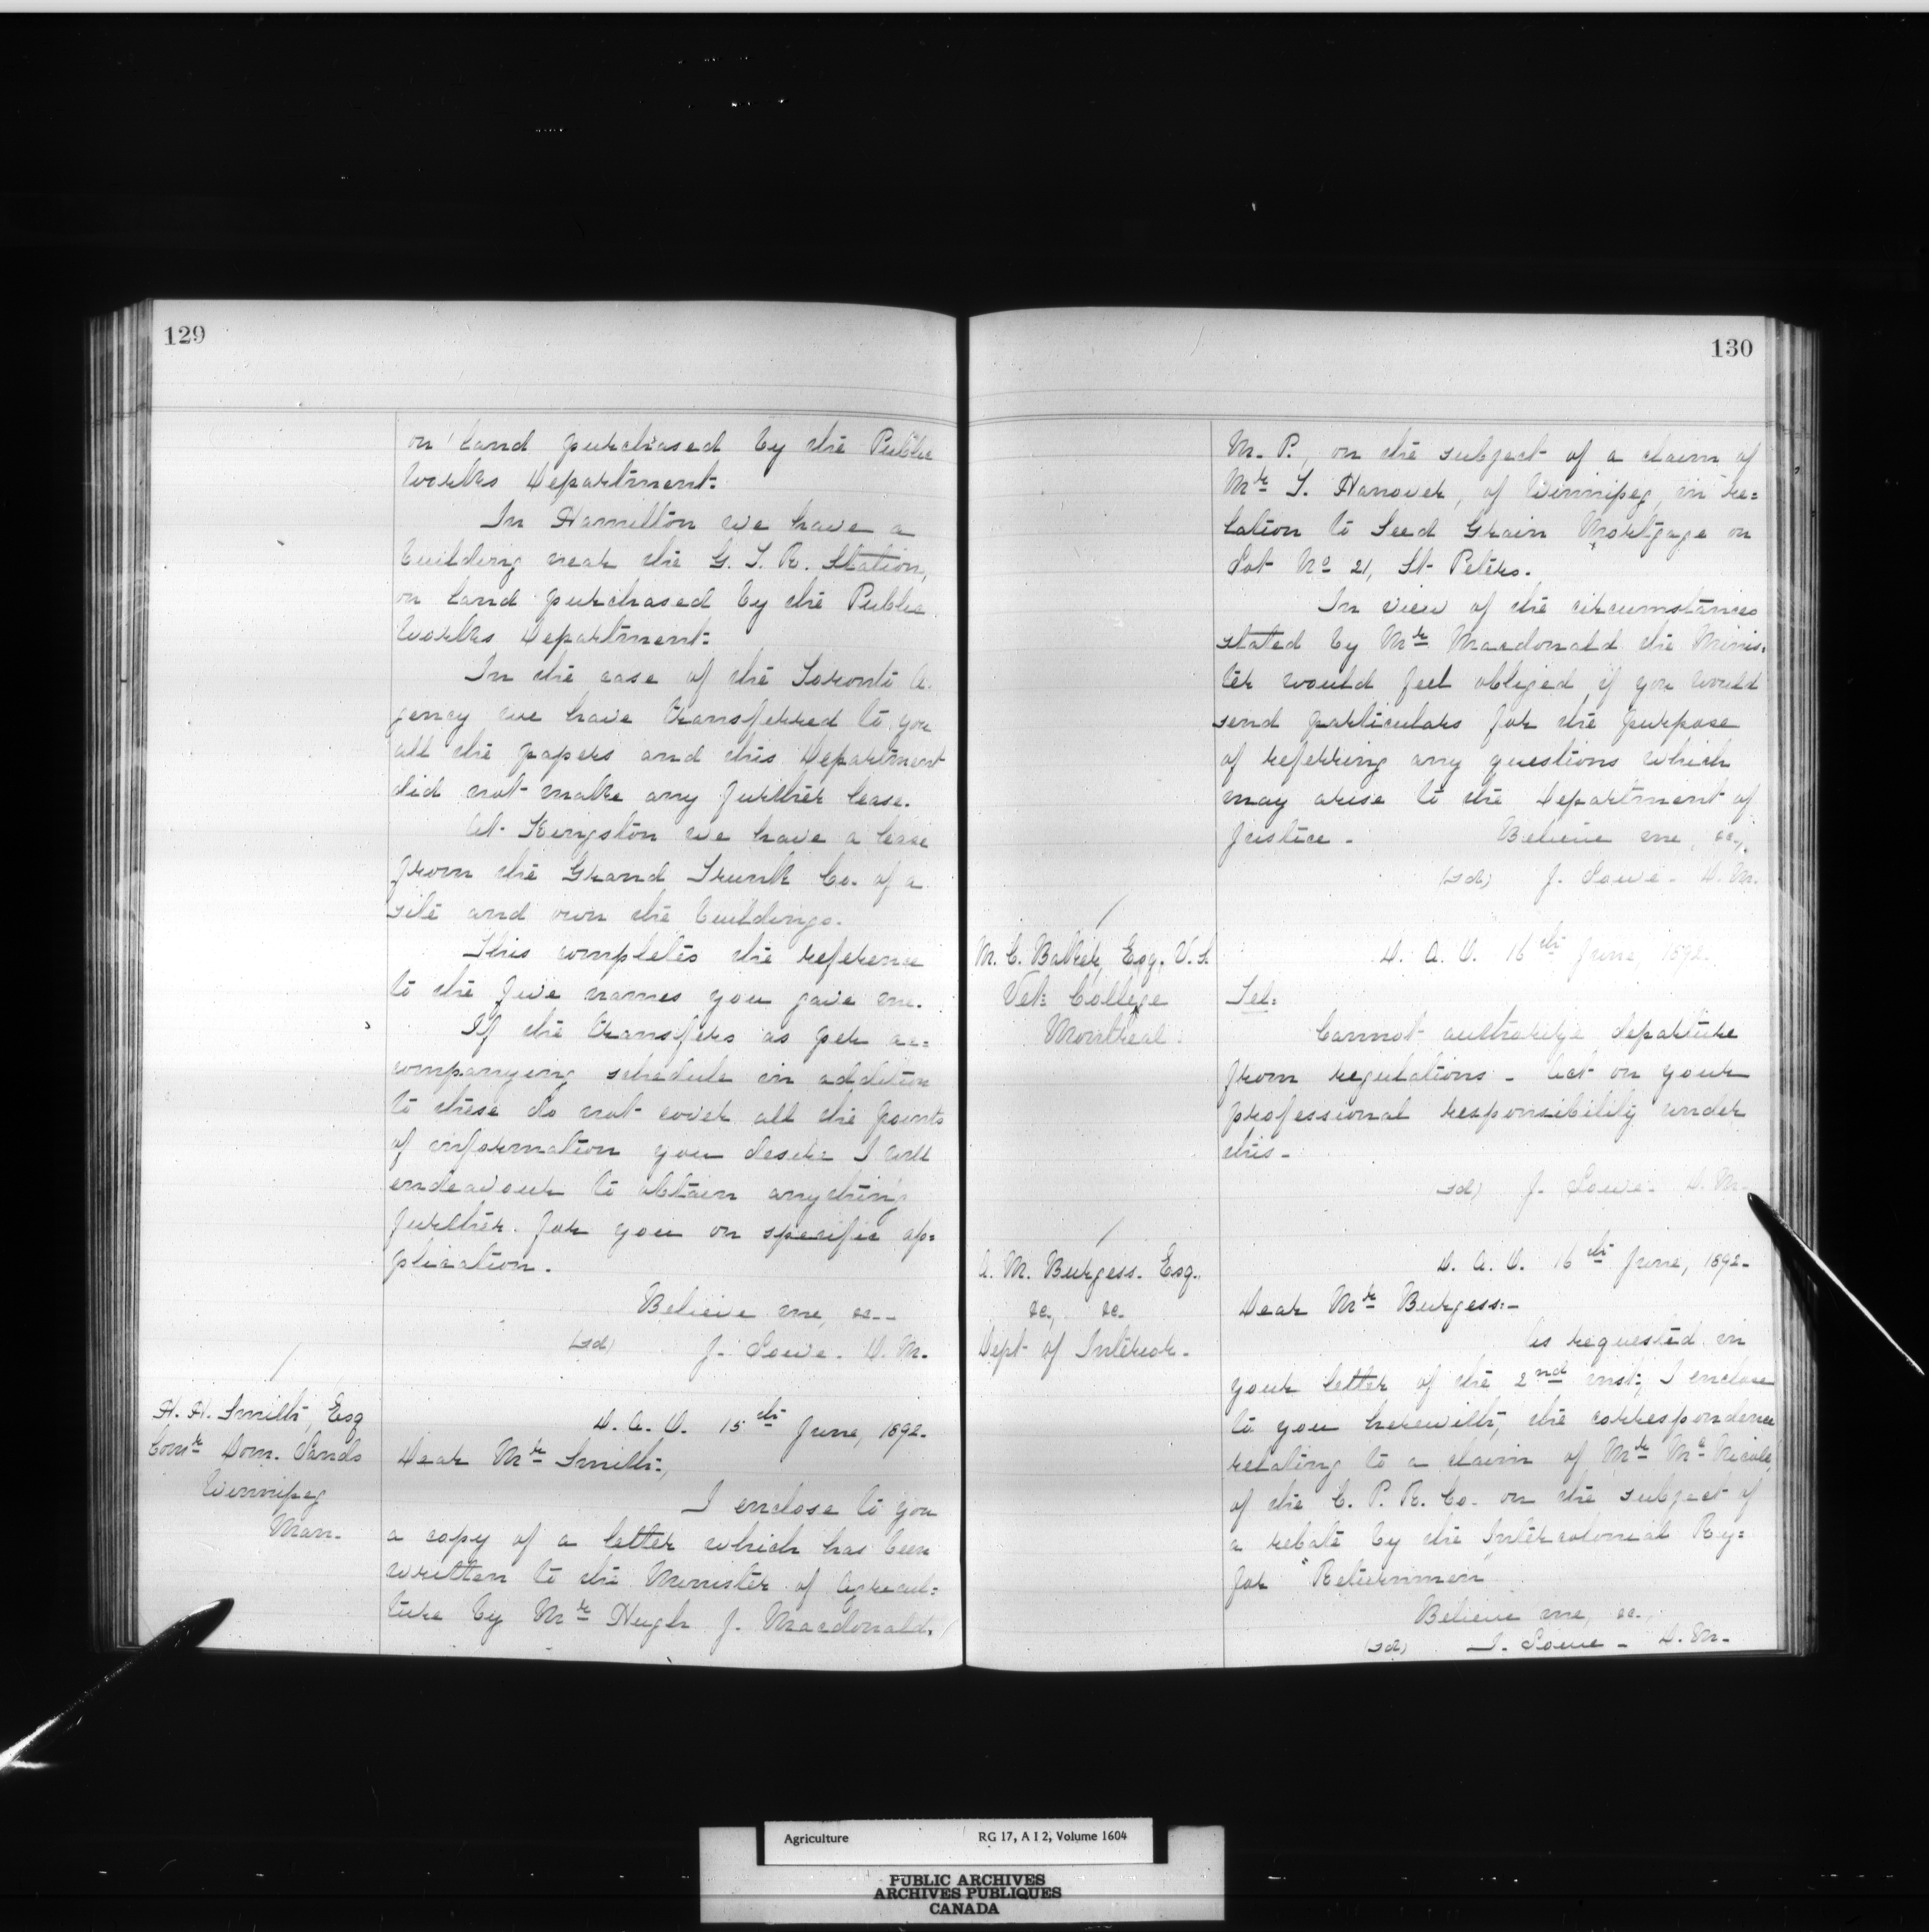 129
on land purchased by the Public
Works Department:
In Hamilton we have a
building near the G. T. R. Station,
on land purchased by the Public
Works Department:
In the case of the Toronto A-
gency we have transferred to you
all the papers and this Department
did not make any further lease.
At Kingston we have a lease
from the Grand Trunk Co. of a
site and own the buildings.
This completes the reference
to the five names you gave me.
If the transfers as per ac=
companying schedule in addition
to these do not cover all the points
of information you desire I will
endeavour to obtain anything
further for you on specific ap=
plication.
Believe me, &c--
(sd) J. Lowe. D. M.
H. H. Smith, Esq
Comr Dom. Lands
Winnipeg
Man.
D. A. O. 15th June, 1892-
Dear Mr Smith,
I enclose to you
a copy of a letter which has been
written to the Minister of Agricul=
ture by Mr Hugh J. Macdonald,
130
M. P., on the subject of a claim of
Mr T. Hanover, of Winnipeg, in re=
lation to Seed Grain Mortgage on
Lot No 21, St. Peters.
In view of the circumstances
stated by Mr Macdonald the Minis=
ter would feel obliged if you would
send particulars for the purpose
of referring any questions which
may arise to the Department of
Justice - Believe me, &c.,
(sd) J. Lowe - D. M.
M. C. Baker, Esq. V. S.
Vet: College
Montreal.
D. A. O. 16th June, 1892.
Tel:
Cannot authorize departure
from regulations - Act on your
professional responsibility under
this -
(sd) J. Lowe. D. M-
A. M. Burgess. Esq.
&c, &c.
Dept of Interior.
D. A. O. 16th June, 1892-
Dear Mr Burgess:-
As requested in
your letter of the 2nd inst:, I enclose
to you herewith, the correspondence
relating to a claim of Mr McNicoll,
of the C. P. R. Co. on the subject of
a rebate by the Intercolonial Ry=
for "Returnmen"
Believe me, &c.,
(sd) J. Lowe - D. M-
Agriculture RG 17, A I 2, Volume 1604
PUBLIC ARCHIVES
ARCHIVES PUBLIQUES
CANADA